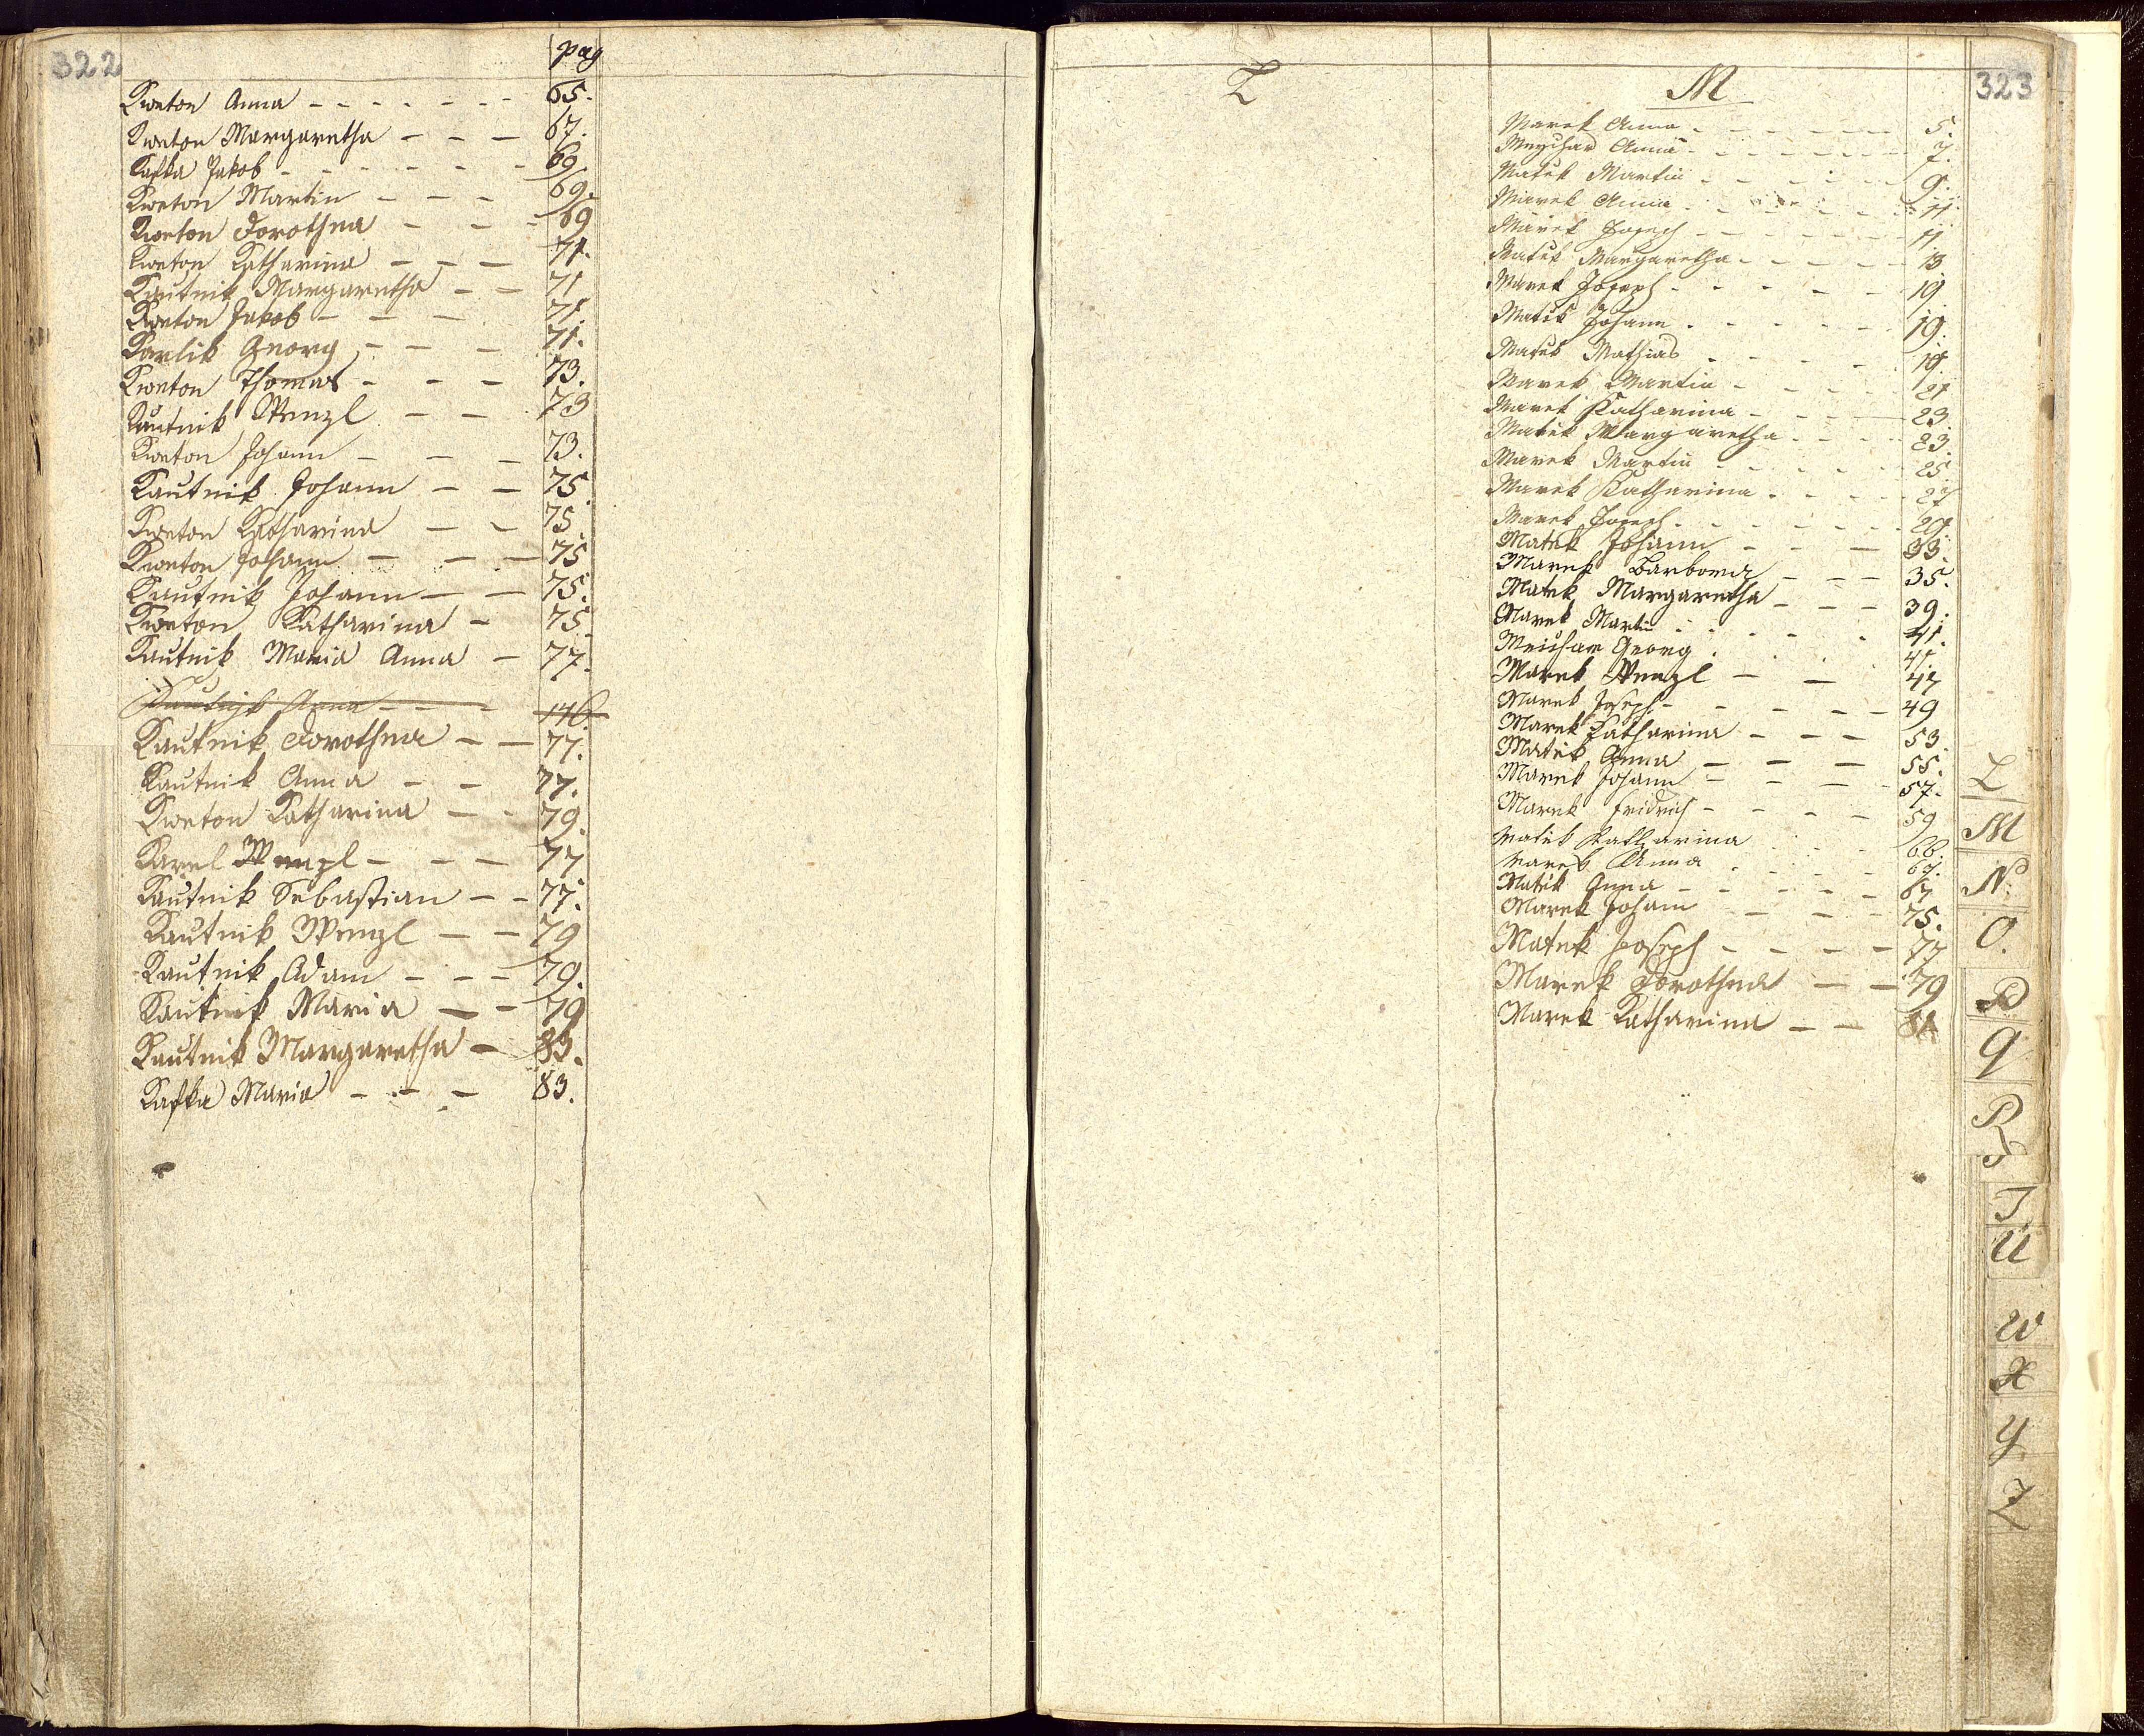 322
pag
Kweton Anna - - - - - - - 65.
Kweton Margaretha - - - 67.
Kafka Jakob - - - - - - 69
Kweton Martin - - - 69.
Kweton Dorothea - - - 69
Kweton Katharina - - - 71.
Kautnik Margaretha - - 71
Kweton Jakob - - - 71.
Karlik Georg - - - 71.
Kweton Thomas - - - 73.
Kautnik Wenzl - - 73
Kweton Johann - - - 73.
Kautnik Johann - - 75.
Kweton Katharina - - 75
Kweton Johann - - - 75
Kautnik Johann - - 75.
Kweton Katharina - 75
Kautnik Maria Anna - 77.
Kautnik Anna - - - 176.
Kautnik Dorothea - - 77.
Kautnik Anna - - 77.
Kweton Katharina - - 79.
Karel Wenzl - - - 77
Kautnik Sebastian - - 77.
Kautnik Wenzl - - 79
Kautnik Adam - - - 79.
Kautnik Maria - - 79
Kautnik Margaretha - 83.
Kafka Maria - - - 83.
323
L
M
Marek Anna - - - - - - 5.
Meychar Anna - - - - - - 7.
Matek Martin - - - - - 9.
Marek Anna - - - - - 11.
Marek Joseph - - - - - - 11
Matek Margaretha - - - - - 13
Marek Joseph - - - - - 19
Matek Johann - - - - - 19.
Matek Mathias - - - - 19.
Marek Martin - - - - 21
Marek Katharina - - - - 23.
Matek Margaretha - - - - 23.
Marek Martin - - - - - 25
Marek Katharina - - - - 27
Marek Joseph - - - - - - 29.
Matek Johann - - - 33.
Marek Barbora - - - 35.
Matek Margaretha - - - 39.
Marek Martin - - - - - 41.
Meichar Georg - - - - 41.
Marek Wenzl - - 47
Marek Joseph - - - - - 49
Marek Katharina - - - 53.
Matek Anna - - - 55.
Marek Johann - - - - 57.
Marek Fridrich - - - - 59
Matek Katharina - - - 66.
Marek Anna - - - - - 67.
Matek Anna - - - - - 67
Marek Johann - - - - 75.
Matek Joseph - - - - 77
Marek Dorothea - - 79
Marek Katharina - - 81
L
M
N.
O.
P
Q
R
S
T
U
W
X
Y
Z